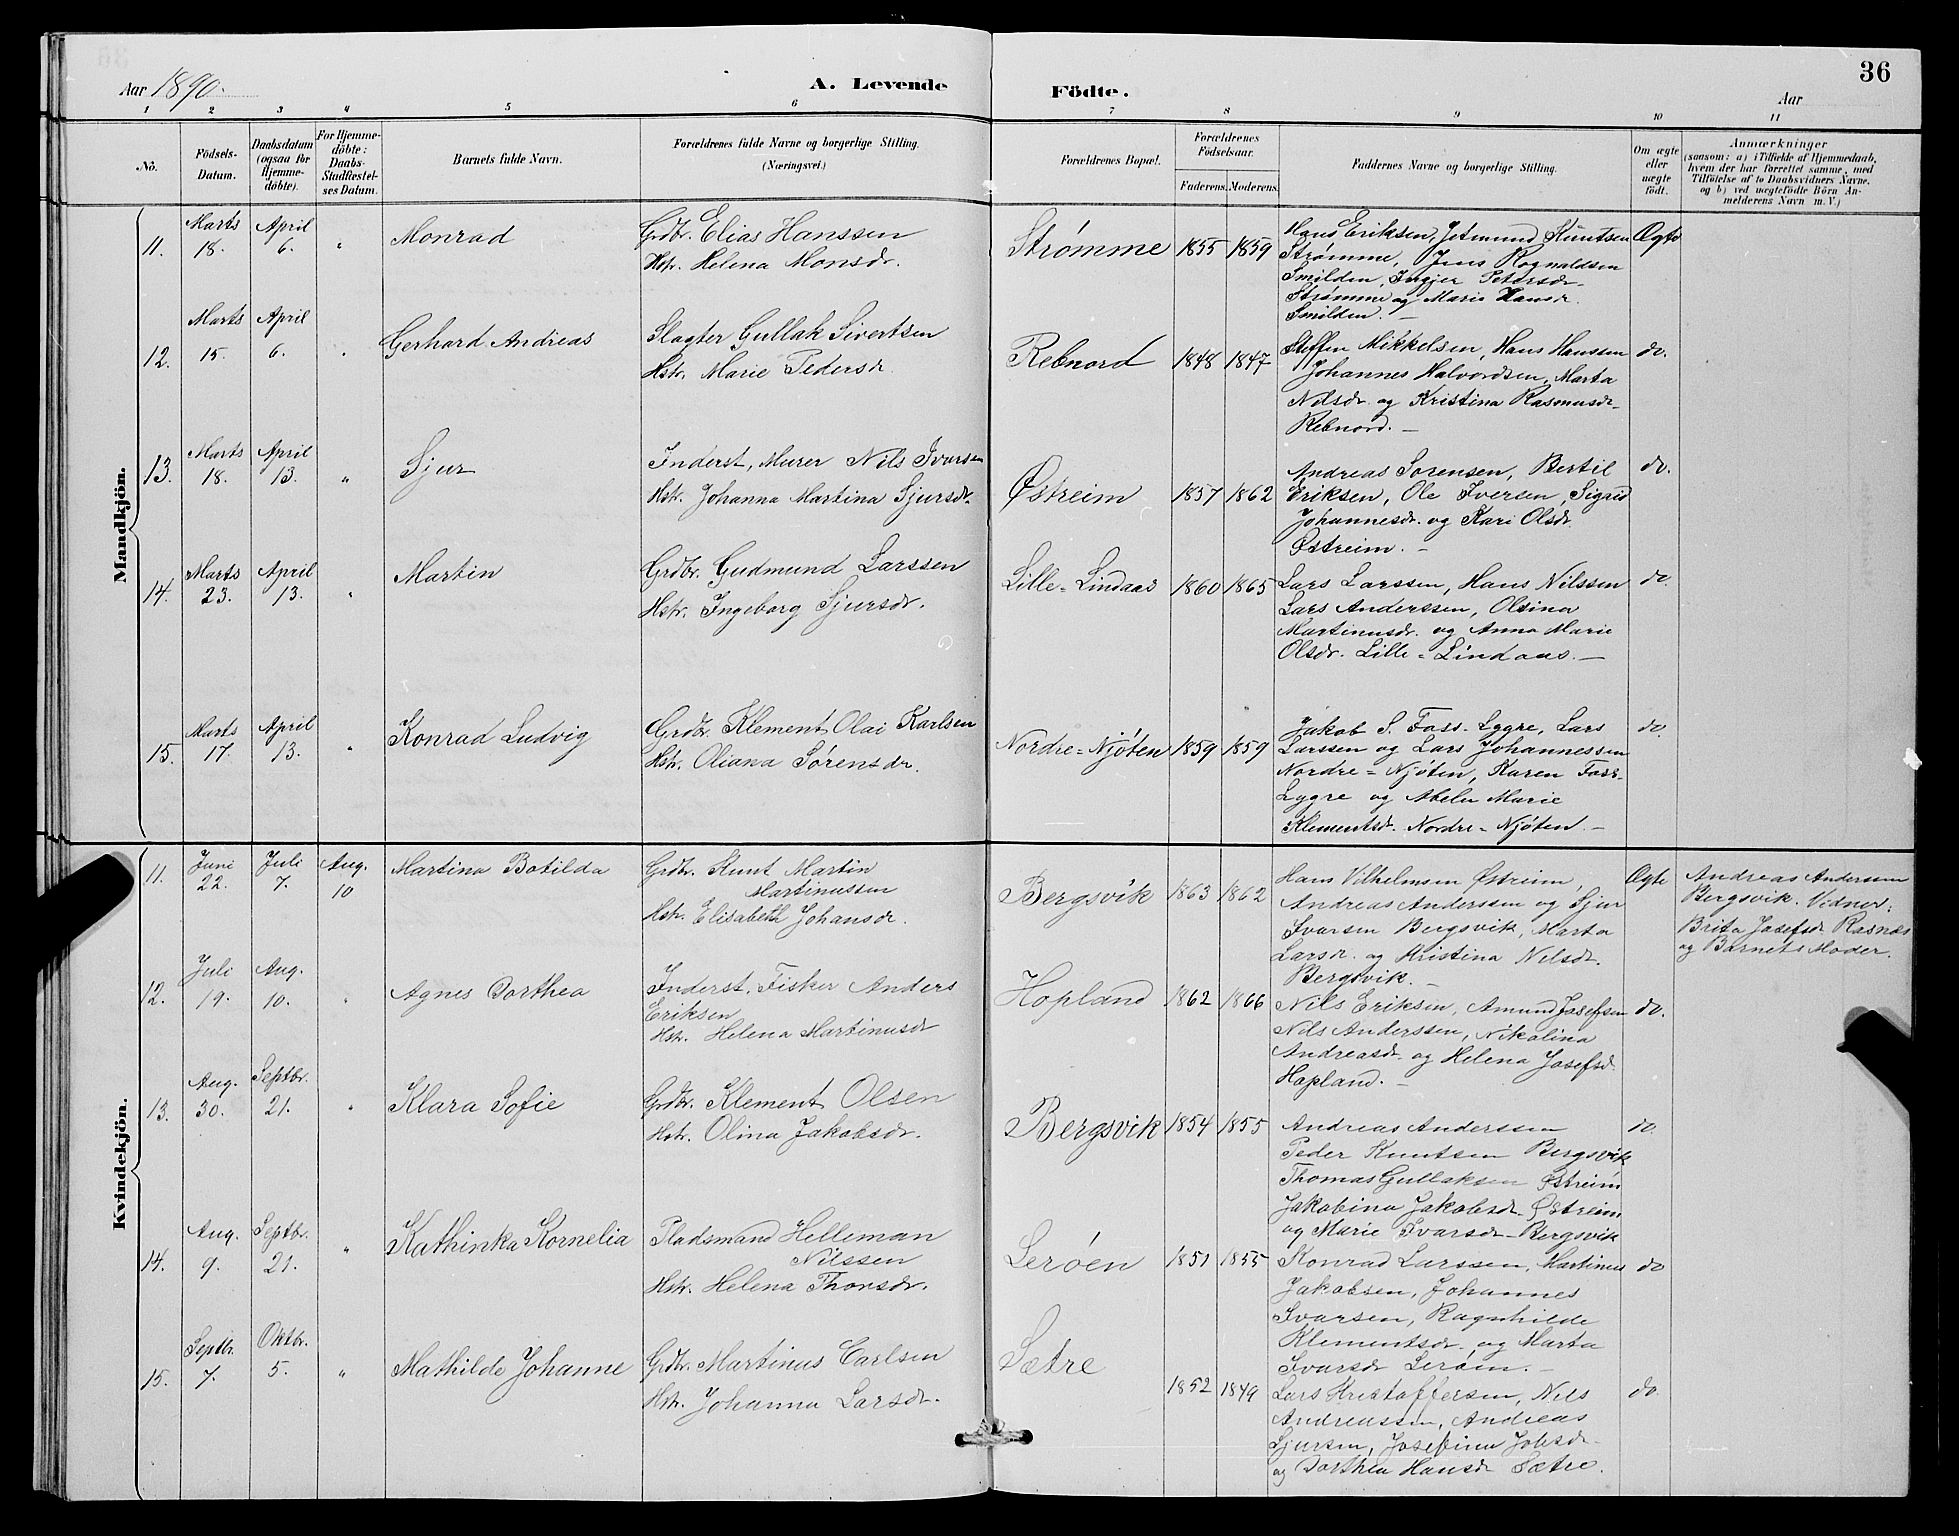 36
Aar 1890.
A. Levende Födte.
Aar
1 2 3 4 5 6 7 8 9 10 11
No.
Födsels-Datum.
Daabsdatum (ogsaa for Hjemmedöbte).
For Hjemmedöbte: Daabs-Stadfæstelses Datum.
Barnets fulde Navn.
Forældrenes fulde Navne og borgerlige Stilling. (Næringsvei.)
Forældrenes Bopæl.
Forældrenes Födselsaar.
Faderens. Moderens.
Faddernes Navne og borgerlige Stilling.
Om ægte eller uægte födt.
Anmærkninger
(saasom: a) i Tilfælde af Hjemmedaab,
hvem der har forrettet samme, med
Tilföielse af to Daabsvidners Navne,
og b) ved uægtefödte Börn An-
melderens Navn m. V.)
Mandkjön.
11. Marts 18. April 6. " Monrad
Grdbr. Elias Hanssen
Hstr. Helena Monsdr.
Strømme 1855 1859
Hans Eriksen, Jetmund Knutsen
Strømme, Jens Rognaldsen
Smilden, Ingjer Petersdr.
Strømme og Marie Hansdr.
Smilden. —
Ægte
12. Marts 15. April 6. " Gerhard Andreas
Slagter Gullak Sivertsen
Hstr. Marie Pedersdr.
Rebnord 1848 1847
Steffen Mikkelsen, Hans Hanssen
Johannes Halvordsen, Marta
Nilsdr. og Kristina Rasmusdr.
Rebnord. —
do.
13. Marts 18. April 13. " Sjur
Inderst, Murer Nils Ivarsen
Hstr. Johanna Martina Sjursdr.
Østreim 1857 1862
Andreas Sorensen, Bertil
Eriksen, Ole Iversen, Sigrid
Johannesdr. og Kari Olsdr.
Østreim. —
do.
14. Marts 23. April 13. " Martin
Grdbr. Gudmund Larssen
Hstr. Ingeborg Sjursdr.
Lille-Lindaas 1860 1865
Lars Larssen, Hans Nilssen
Lars Anderssen, Olsina
Martinusdr. og Anna Marie
Olsdr. Lille-Lindaas. —
do.
15. Marts 17. April 13. " Konrad Ludvig
Grdbr. Klement Olai Karlsen
Hstr. Oliana Sørensdr.
Nordre-Njøten 1859 1859
Jakob S. Foss-Lygre, Lars
Larssen og Lars Johannessen
Nordre-Njøten, Karen Foss-
Lygre og Abelu Marie
Klementsdr. Nordre-Njøten. —
do.
Kvindekjön.
11. Juni 22. Juli 7. Aug. 10 Martina Botilda
Grdbr. Knut Martin
Martinussen
Hstr. Elisabeth Johansdr.
Bergsvik 1863 1862
Hans Vilhelmsen Østreim,
Andreas Anderssen og Sjur
Ivarsen Bergsvik, Marta
Larsdr. og Kristina Nilsdr.
Bergsvik. —
Ægte
Andreas Anderssen
Bergsvik. Vidner:
Brita Josefsdr. Rasnæs
og Barnets Moder.
12. Juli 19. Aug. 10. " Agnes Dorthea
Inderst, Fisker Anders
Eriksen
Hstr. Helena Martinusdr
Hopland 1862 1866
Nils Eriksen, Amund Josefsen
Nils Anderssen, Nikolina
Andreasdr. og Helena Josefsdr.
Hopland. —
do.
13. Aug. 30. Septbr. 21. " Klara Sofie
Grdbr. Klement Olsen
Hstr. Olina Jakobsdr.
Bergsvik 1854 1855
Andreas Anderssen
Peder Knutsen Bergsvik
Thomas Gullaksen Østreim
Jakobina Jakobsdr. Østreim
og Marie Ivarsdr. Bergsvik
do.
14. Aug. 9. Septbr. 21. " Kathinka Kornelia
Pladsmand Helleman
Nilssen
Hstr. Helena Thorsdr.
Lerøen 1851 1855
Konrad Larssen, Martinus
Jakobsen, Johannes
Ivarsen, Ragnhilde
Klementsdr. og Marta
Ivarsdr Lerøen. —
do
15. Septbr. 7. Oktbr. 5. " Mathilde Johanne
Grdbr. Martinus Carlsen
Hstr. Johanna Larsdr.
Sætre 1852 1849
Lars Kristoffersen, Nils
Andreassen, Andreas
Sjursen, Josefina Johsdr.
og Dorthea Hansdr Sætre.
do.